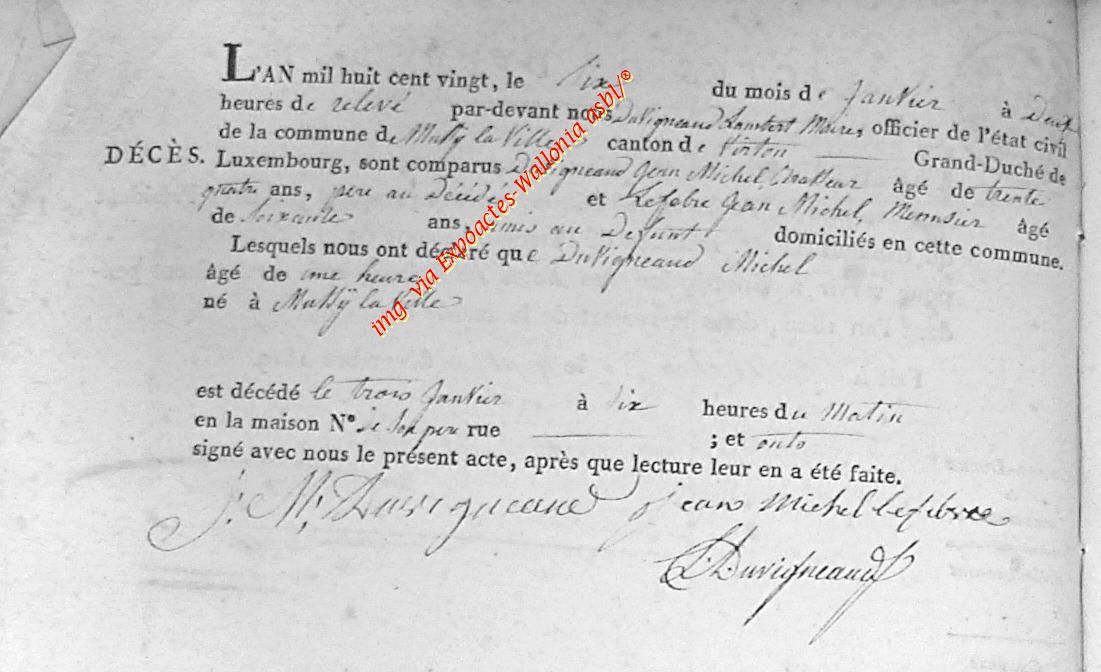 L'AN mil huit cent vingt, le six du mois de Janvier à Deux
heures de relevé par-devant nous Duvigneaud Lambert Maire, officier de l'état civil
de la commune de Mussy la Ville, canton de Virton Grand-Duché de
DÉCÈS. Luxembourg, sont comparus Duvigneaud Jean Michel, âgé de trente
quatre ans, pere au Décédé et Lefebre Jean Michel, Menusier âgé
de Soixante ans, amis au Defunt domiciliés en cette commune.
Lesquels nous ont déclaré que Duvigneaud Michel
âgé de une heure
né à Mussÿ la Ville
est décédé le trois Janvier à six heures du Matin
en la maison N° de son pere rue ; et onts
signé avec nous le présent acte, après que lecture leur en a été faite.
J. M. Duvigneaud jean Michel lefebvre
L. Duvigneaud
img- via Expoactes-Wallonia asbl/®